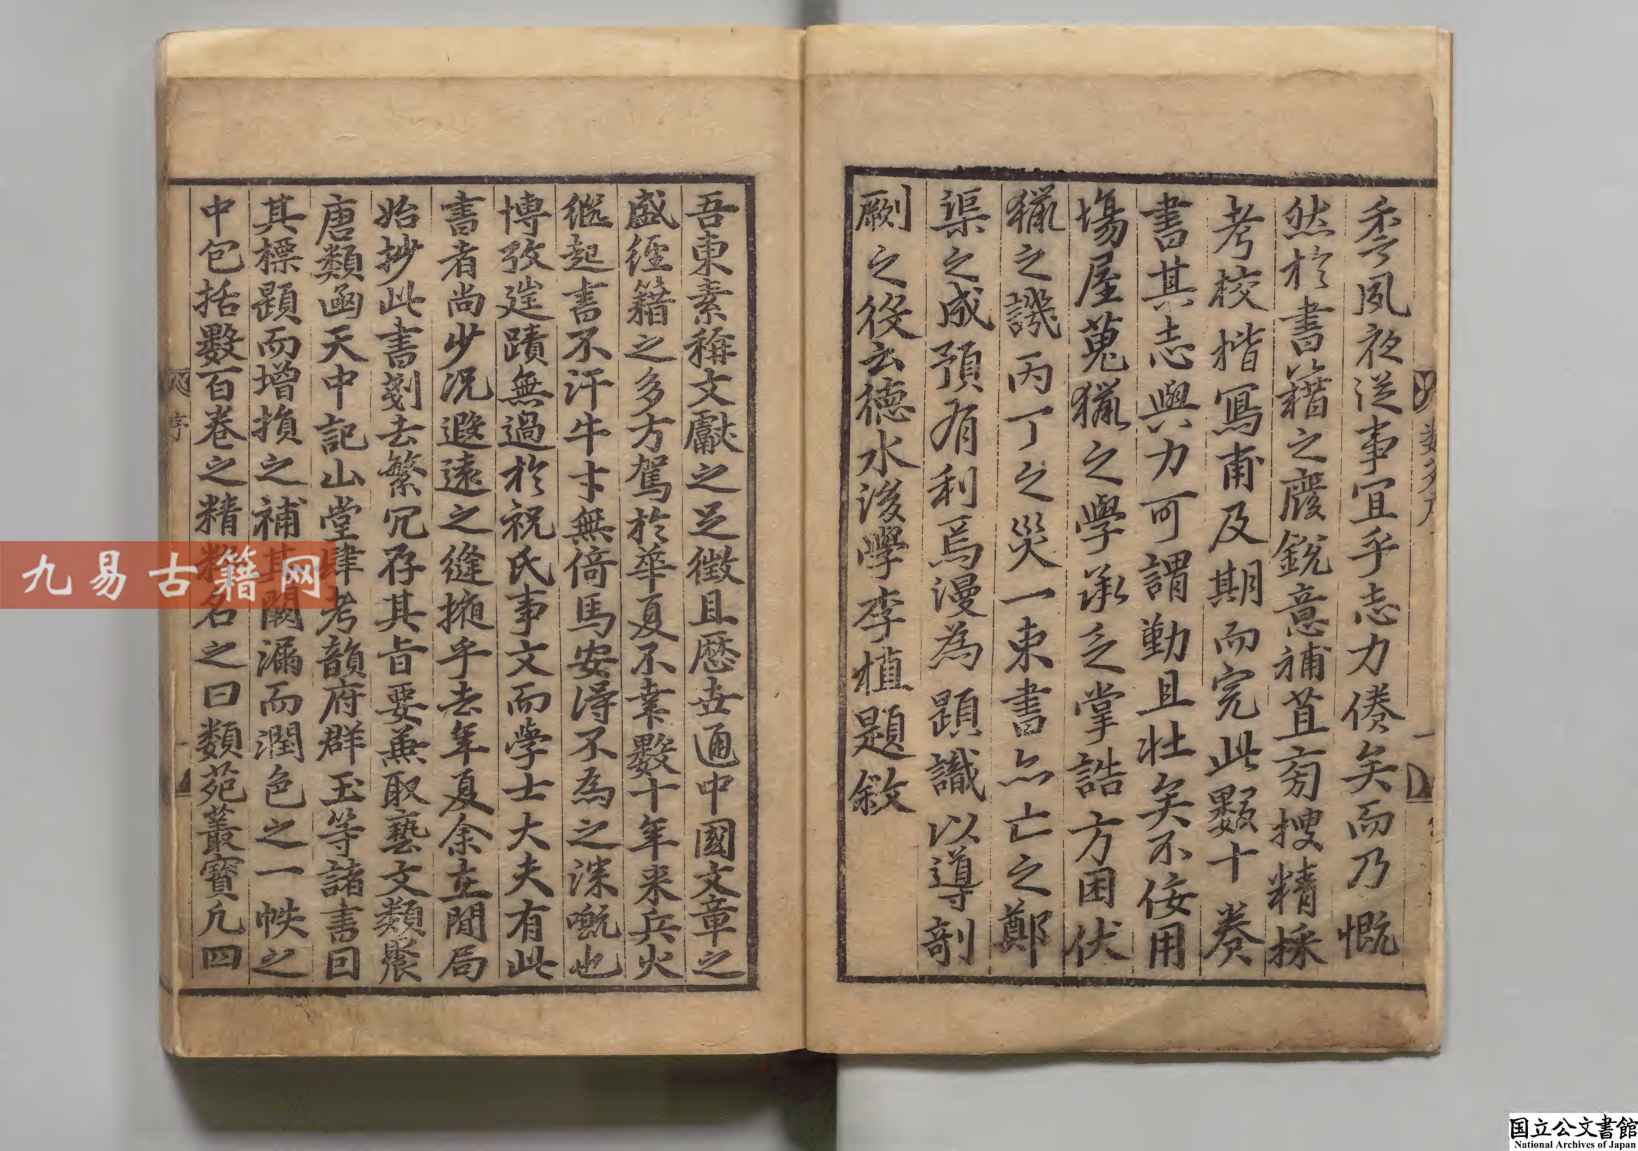 忝夙夜從事宜乎志力倦矣而乃慨
然於書籍之殘銳意補苴旁搜精採
考校楷寫甫及期而完此數十卷
書其志與力可謂勤且壯矣不佞用
塲屋蒐獵之學承乏掌誥方困伏
獵之譏丙丁之災一束書亦亡之鄭
渠之成預有利焉漫為題識以導剞
劂之役云德水後學李植題敘
吾東素稱文獻之足徵且歷世通中國文章之
盛經籍之多方駕於華夏不幸數十年來兵火
繼起書不汗牛才無倚馬安得不為之深嘅也
博攷逞蹟無過於祝氏事文而學士大夫有此
書者尚少况遐遠之縫掖乎去年夏余在閒局
始抄此書刻去繁冗存其旨要兼取藝文類聚
唐類函天中記山堂肆考韻府群玉等諸書因
其標題而增損之補其闕漏而潤色之一帙之
中包括數百卷之精粹名之曰類苑叢寶凡四
序
九易古籍网
国立公文書館
National Archives of Japan